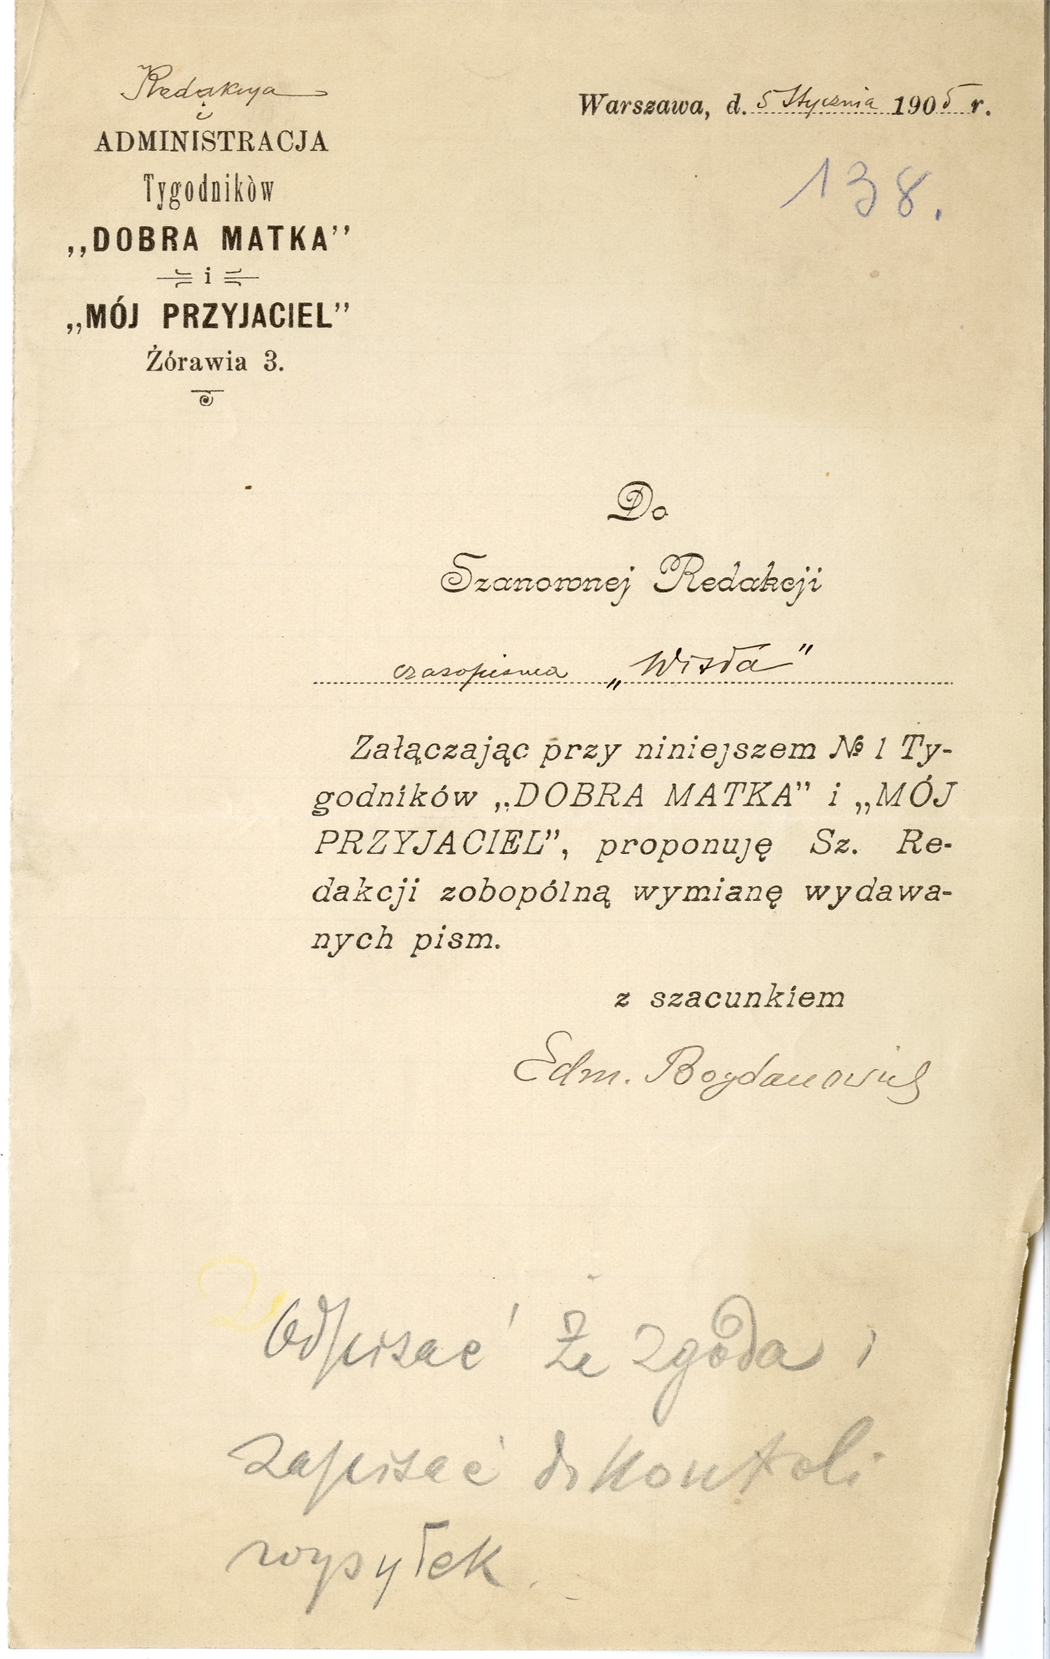 Redakcya
i
ADMINISTRACJA
Tygodnikòw
„DOBRA MATKA”
i
„MÓJ PRZYJACIEL”
Żórawia 3.
Warszawa, d. 5 Stycznia 1905 r.
138.
Do
Szanownej Redakcji
czasopisma „Wisła”
Załączając przy niniejszem № 1 Ty-
godników „DOBRA MATKA” i „MÓJ
PRZYJACIEL”, proponuję Sz. Re-
dakcji zobopólną wymianę wydawa-
nych pism.
z szacunkiem
Edm. Bogdanowicz
Odpisać że zgoda i
zapisać do kontroli
wysyłek.